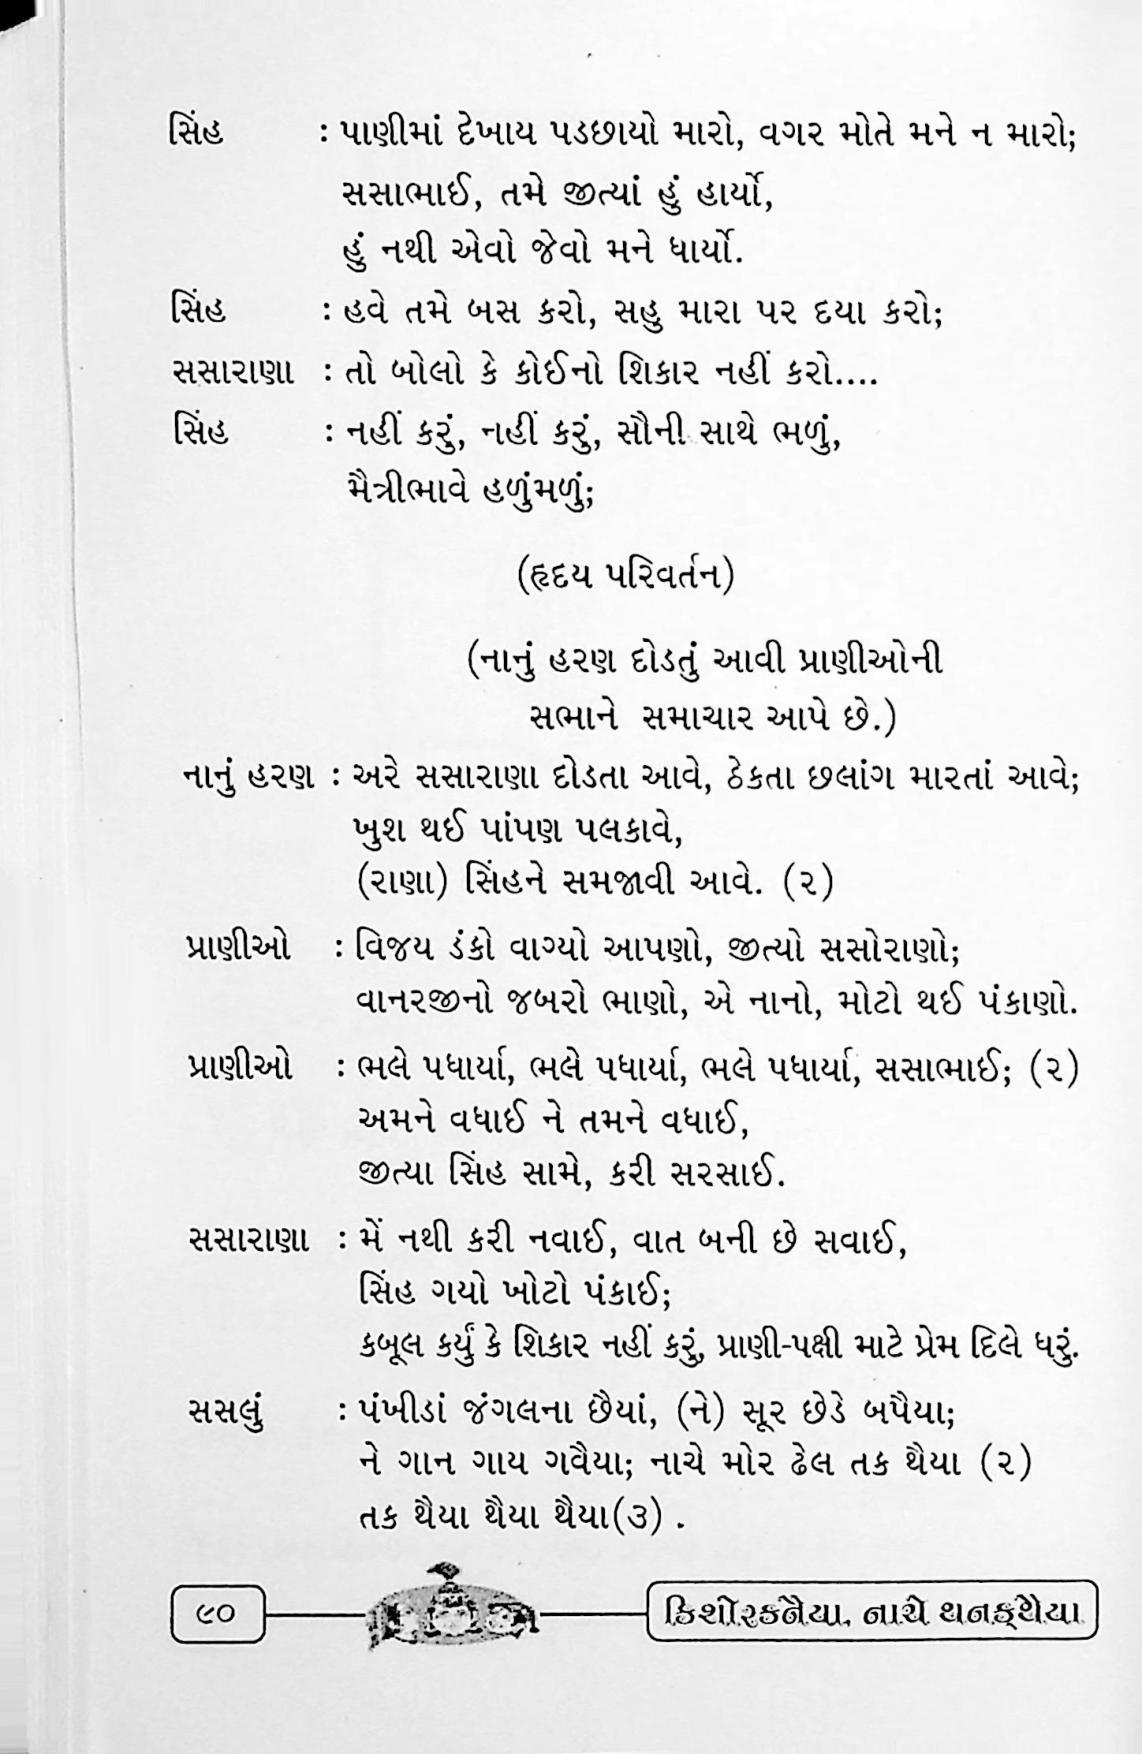 સિંહ : પાણીમાં દેખાય પડછાયો મારો, વગર મોતે મને ન મારો;
સસાભાઈ, તમે જીત્યાં હું હાર્યો,
હું નથી એવો જેવો મને ધાર્યો.
સિંહ : હવે તમે બસ કરો, સહુ મારા પર દયા કરો;
સસારાણા : તો બોલો કે કોઈનો શિકાર નહીં કરો....
સિંહ : નહીં કરું, નહીં કરું, સૌની સાથે ભળું,
મૈત્રીભાવે હળુંમળું;
(હૃદય પરિવર્તન)
(નાનું હરણ દોડતું આવી પ્રાણીઓની
સભાને સમાચાર આપે છે.)
નાનું હરણ : અરે સસારાણા દોડતા આવે, ઠેકતા છલાંગ મારતાં આવે;
ખુશ થઈ પાંપણ પલકાવે,
(રાણા) સિંહને સમજાવી આવે. (૨)
પ્રાણીઓ : વિજય ડંકો વાગ્યો આપણો, જીત્યો સસોરાણો;
વાનરજીનો જબરો ભાણો, એ નાનો, મોટો થઈ પંકાણો.
પ્રાણીઓ : ભલે પધાર્યા, ભલે પધાર્યા, ભલે પધાર્યા, સસાભાઈ; (૨)
અમને વધાઈ ને તમને વધાઈ,
જીત્યા સિંહ સામે, કરી સરસાઈ.
સસારાણા : મેં નથી કરી નવાઈ, વાત બની છે સવાઈ,
સિંહ ગયો ખોટો પંકાઈ;
કબૂલ કર્યું કે શિકાર નહીં કરું, પ્રાણી-પક્ષી માટે પ્રેમ દિલે ધરું.
સસલું : પંખીડાં જંગલના છૈયાં, (ને) સૂર છેડે બપૈયા;
ને ગાન ગાય ગવૈયા; નાચે મોર ઢેલ તક થૈયા (૨)
તક થૈયા થૈયા થૈયા(૩) .
૯૦ કિશોરકનૈયા, નાચે થનક્થૈયા